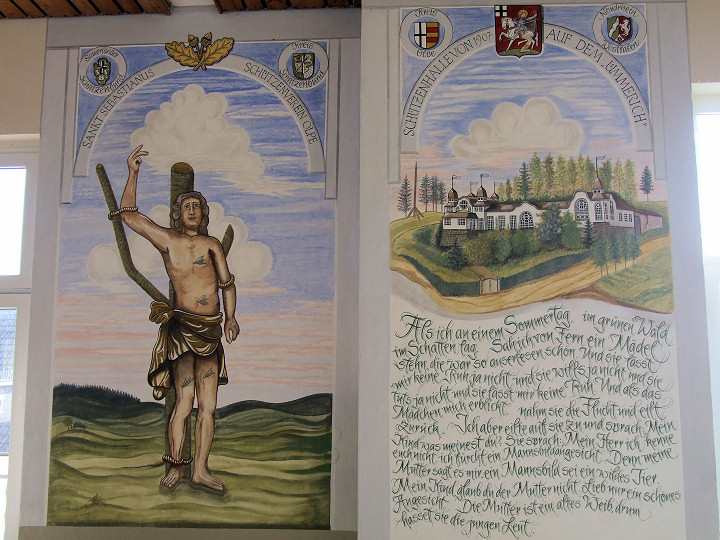 Sauerländer
Schützenbund
Kreis
Schützenbund
SANKT SEBASTIANUS SCHÜTZENVEREIN OLPE
Kreis
Olpe
Nordrhein
Westfalen
SCHÜTZENHALLE VON 1907 AUF DEM "BIMMERICH"
Als ich an einem Sommertag im grünen Wald
im Schatten lag. Sah ich von Fern ein Mädel
stehn, die war so auserlesen schön. Und sie lässt
mir keine Ruh, ja nicht und sie will's ja nicht und sie
tut's ja nicht und sie lässt mir keine Ruh. Und als das
Mädchen mich erblickt nahm sie die Flucht und eilt
zurück. Ich aber eilte auf sie zu und sprach, Mein
Kind was meinest du? Sie sprach, Mein Herr ich kenne
euch nicht ich fürcht ein Mannsbildangesicht. Denn meine
Mutter sagt es mir ein Mannsbild sei ein wildes Tier.
Mein Kind glaub du der Mutter nicht. Lieb nur ein schönes
Angesicht. Die Mutter ist ein altes Weib, drum
hasset sie die jungen Leut.